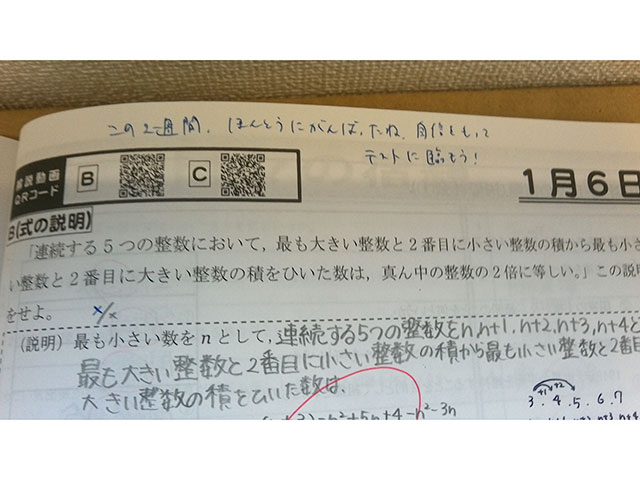 この2週間、ほんとうにがんばったね。自信をもって
テストに臨もう!
解説動画
QRコード
B
C
1月6日
B(式の説明)
「連続する5つの整数において, 最も大きい整数と2番目に小さい整数の積から最も小さ
い整数と2番目に大きい整数の積をひいた数は, 真ん中の整数の2倍に等しい。」この説明
をせよ。
(説明) 最も小さい数をnとして, 連続する5つの整数をn, n+1, n+2, n+3, n+4と
最も大きい整数と2番目に小さい整数の積から最も小さい整数と2番目
大きい整数の積をひいた数は、
3)=n²+5n+4-n²-3n
+1 +2
3. 4. 5. 6. 7
n+3, n+4